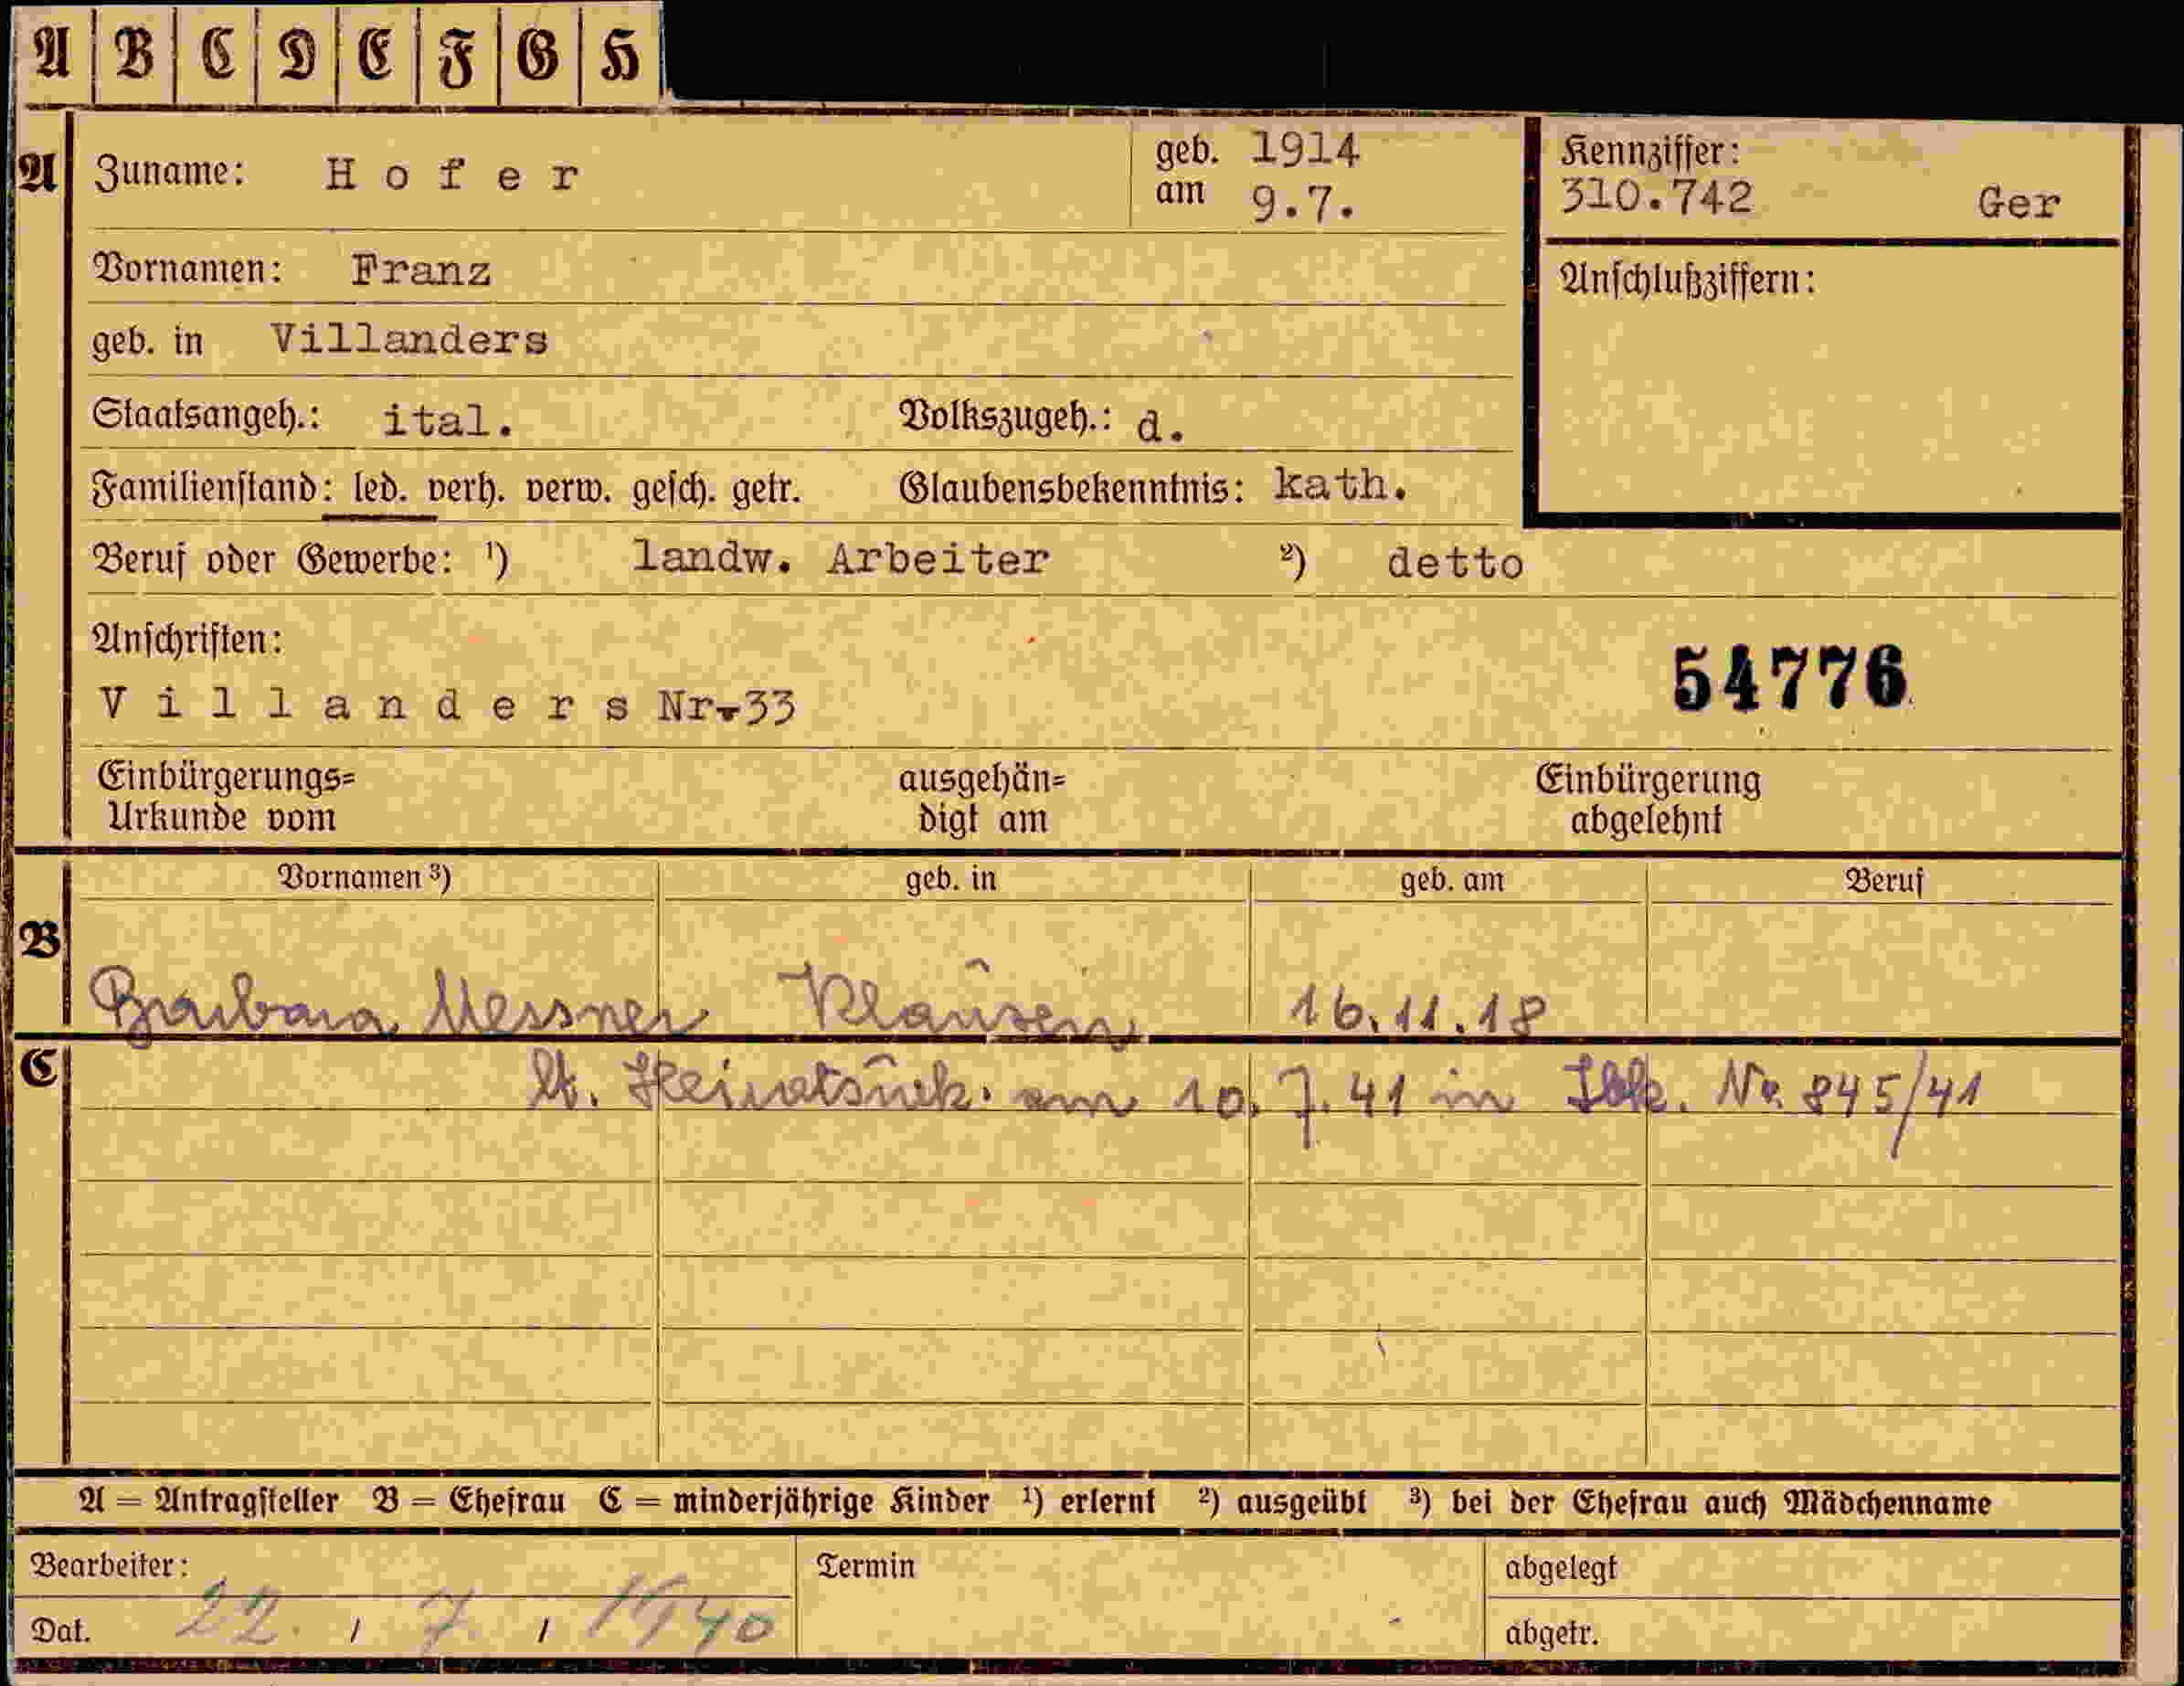 A B C D E F G H
A Zuname: H o f e r geb. 1914 am 9.7.
Kennziffer:
310.742 Ger
Vornamen: Franz
Anschlußziffern:
geb. in Villanders
Staatsangeh.: ital. Volkszugeh.: d.
Familienstand: led. verh. verw. gesch. getr. Glaubensbekenntnis: kath.
Beruf oder Gewerbe: ¹) landw. Arbeiter ²) detto
Anschriften:
54776
V i l l a n d e r s Nr.33
Einbürgerungs=
Urkunde vom
ausgehän=
digt am
Einbürgerung
abgelehnt
Vornamen ³) geb. in geb. am Beruf
B
Barbara Messner Klausen 16.11.18
C
lt. Heiratsurk. am 10.7.41 in Ibk. No. 845/41
A = Antragsteller B = Ehefrau C = minderjährige Kinder ¹) erlernt ²) ausgeübt ³) bei der Ehefrau auch Mädchenname
Bearbeiter: Termin abgelegt
Dat. 22. / 7. / 1940 abgetr.